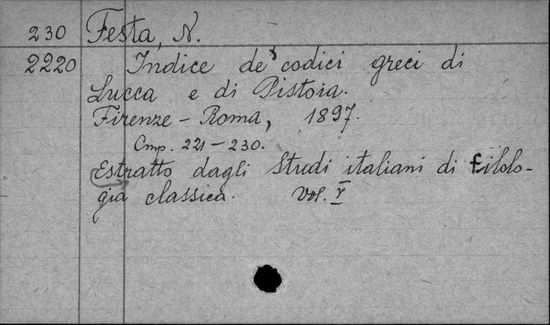 230 Festa, N.
2220 Indice de' codici greci di
Lucca e di Pistoia.
Firenze - Roma, 1897.
Стр. 221-230.
Estratto dagli Studi italiani di filolo-
gia classica. Vol. V